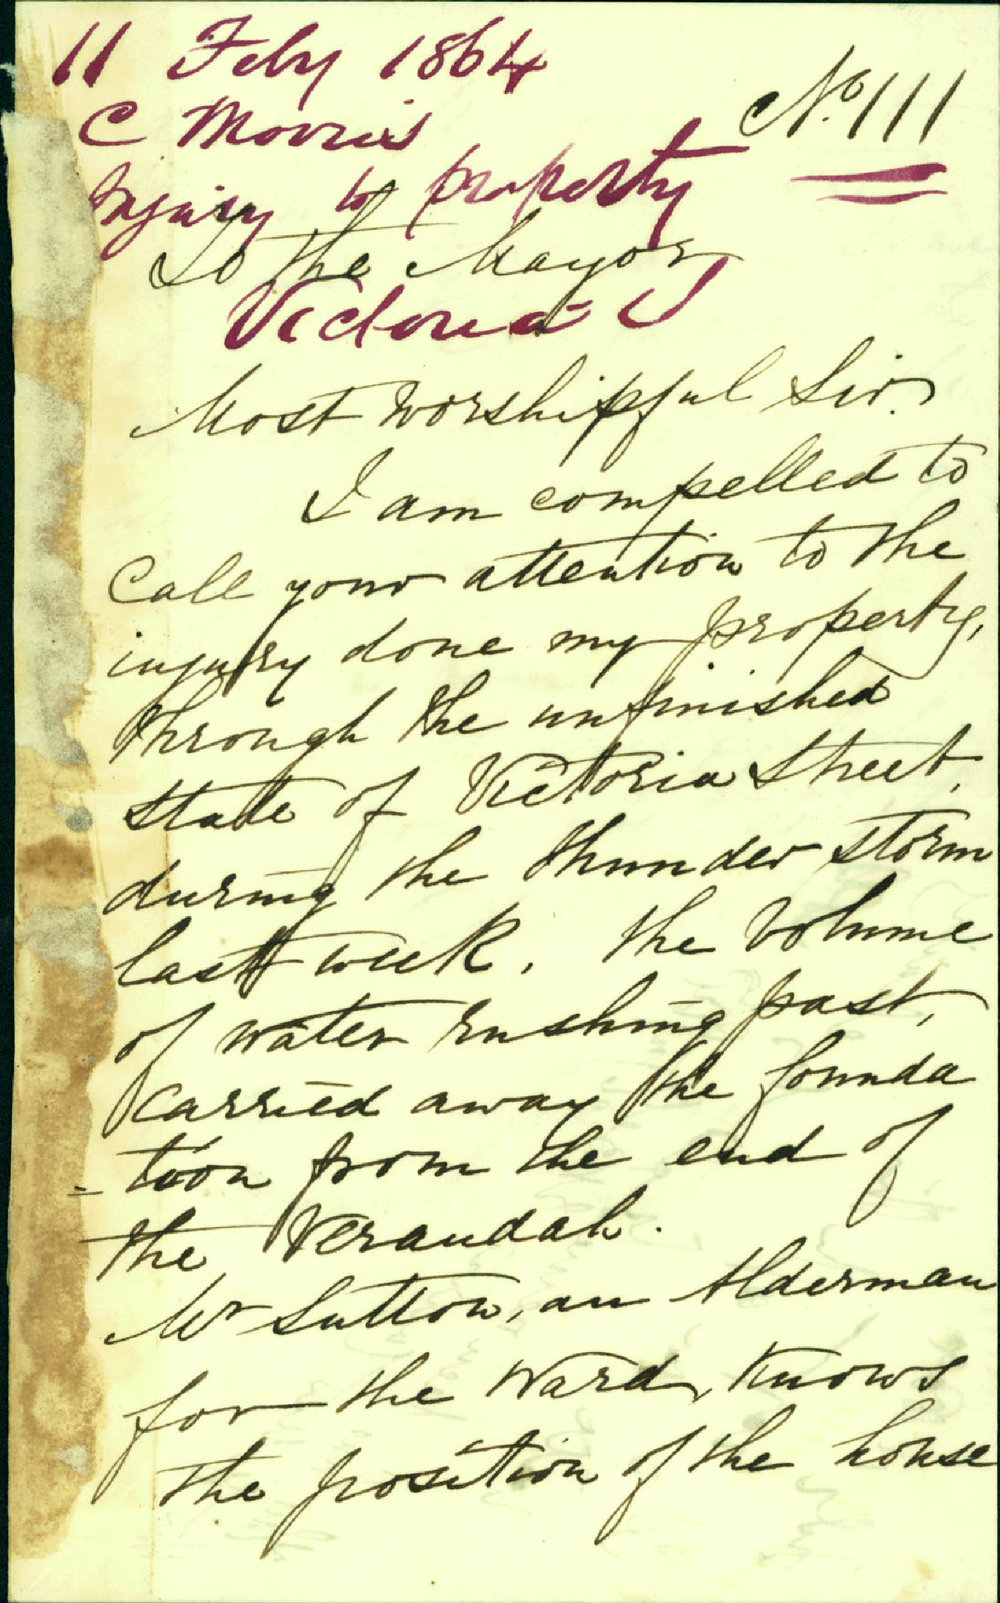 11 Feby 1864
No. 111
C Morris
Injury to property
To the Mayor
Victoria St
Most worshipful Sir.
I am compelled to
Call your attention to the
injury done my property,
through the unfinished
state of Victoria Street,
during the thunder storm
last week. The volume
of water rushing past,
carried away the founda
-tion from the end of
the Verandah.
Mr Sutton, an Alderman
for the Ward, knows
the position of the house